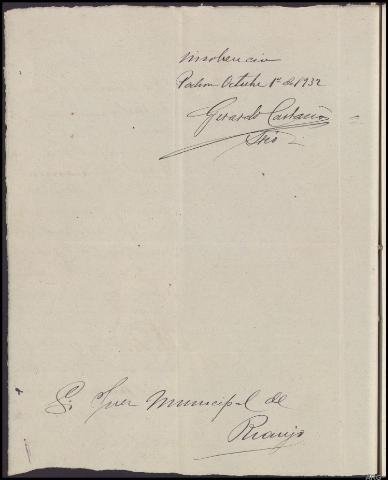 insolvencia
Padron Octubre 1º de 1932
Gerardo Castaño
S. Juez Municipal de
Rianjo